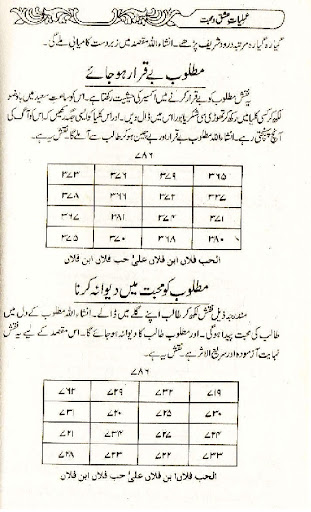 عملیات عشق و محبت
گیارہ گیارہ مرتبہ درود شریف پڑھے۔ انشاء اللہ مقصد میں زبردست کامیابی ملے گی۔
مطلوب بے قرار ہو جائے
یہ نقش مطلوب کو بے قرار کرنے میں اکسیر کی حیثیت رکھتا ہے۔ اس کو ساعت سعید میں باوضو
لکھ کر کسی میں رکھ کر تھوڑی سی اور اس میں ڈال دیں۔ اور اس جگہ رکھیں کہ اس کو آگ کی
آنچ پہنچتی رہے۔ انشاء اللہ مطلوب بے قرار اور بے چین ہو کر طالب سے آ ملے گا۔ نقش یہ ہے۔
۷۸۶
۳۷۳ ۳۷۶ ۳۷۹ ۳۶۵
۳۷۸ ۳۶۶ ۳۷۲ ۳۷۷
۳۶۷ ۳۸۱ ۳۷۴ ۳۷۱
۳۷۵ ۳۷۰ ۳۶۸ ۳۸۰
الحب فلاں ابن فلاں علیٰ حب فلاں ابن فلاں
مطلوب کو محبت میں دیوانہ کرنا
مندرجہ ذیل نقش لکھ کر طالب اپنے گلے میں ڈالے۔ انشاء اللہ مطلوب کے دل میں
طالب کی محبت پیدا ہوگی۔ اور مطلوب طالب کا دیوانہ ہو جائے گا۔ اس مقصد کے لیے یہ نقش
نہایت آزمودہ اور سریع الاثر ہے۔ نقش یہ ہے۔
۷۸۶
۷۶۲ ۷۲۹ ۷۳۲ ۷۱۹
۷۳۱ ۷۲۰ ۷۲۵ ۷۳۰
۷۲۱ ۷۳۴ ۷۲۷ ۷۲۴
۷۲۸ ۷۲۳ ۷۲۲ ۷۳۳
الحب فلاں ابن فلاں علیٰ حب فلاں ابن فلاں